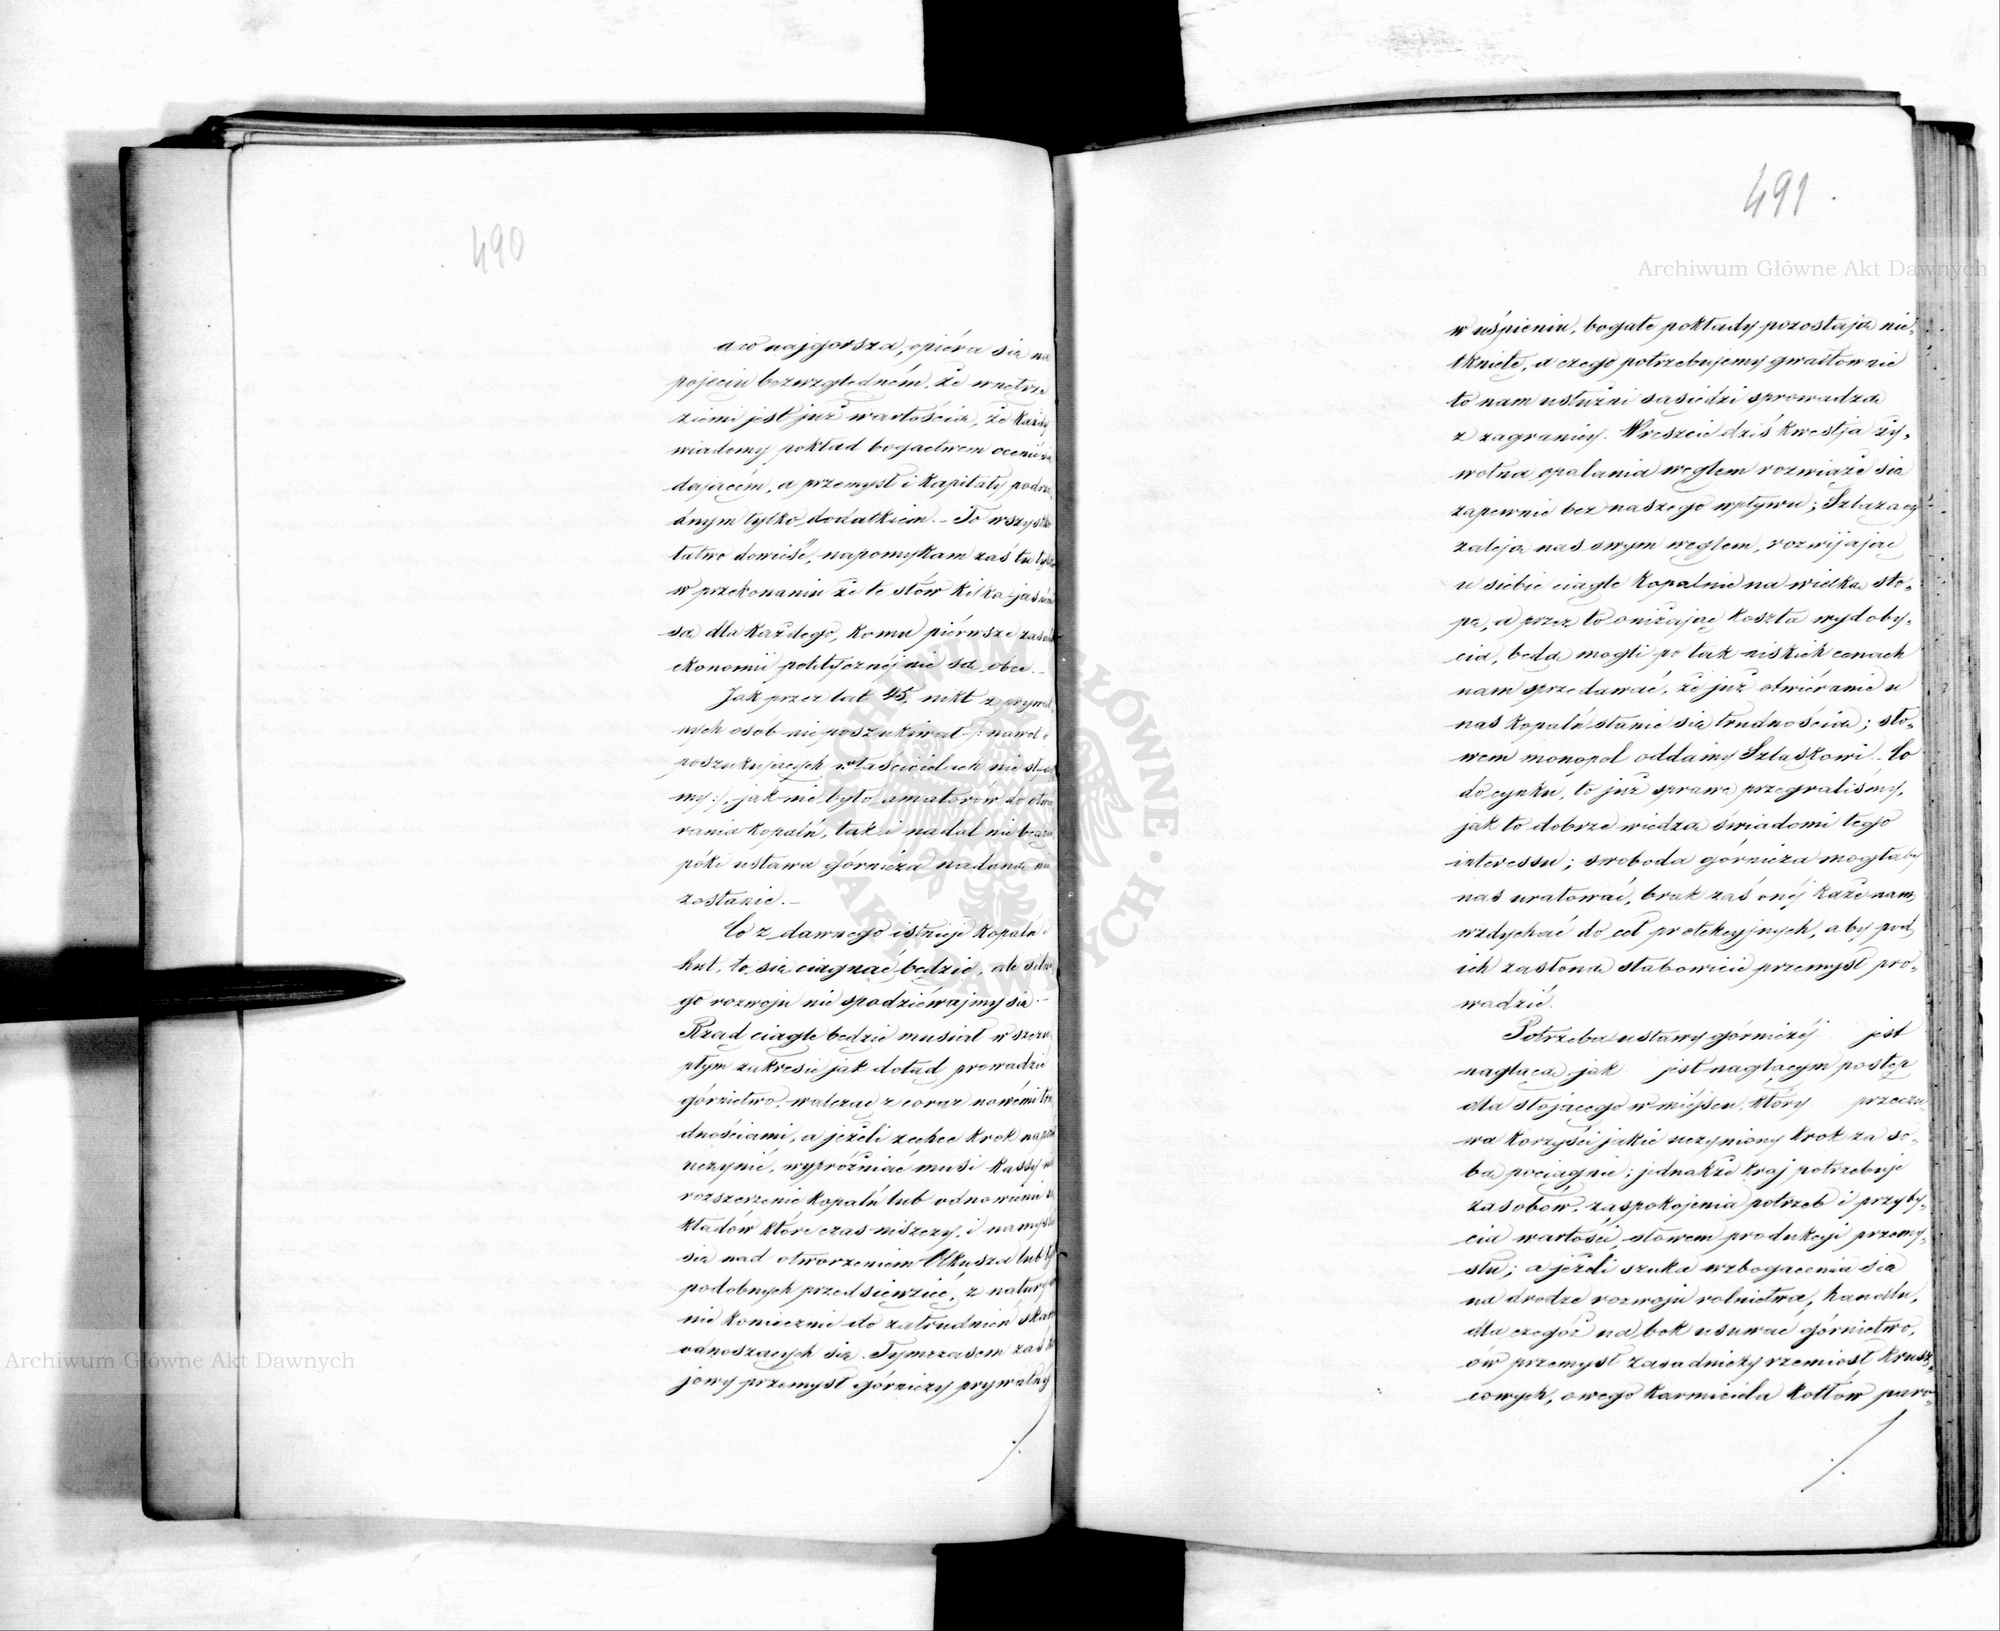 490
a co najgorsza, opiéra się na
pojęciu bezwzględném, że wnętrze
ziemi jest już wartością, że każdy
wiadomy pokład bogactwem ocenić się
dającém, a przemysł i kapitały podrzę
dnym tylko dodatkiem. – To wszystko
łatwo dowieść, napomykam zaś tu tylko
w przekonaniu że te słów kilka jasnémi
są dla każdego, komu piérwsze zasady
ekonomii politycznéj nie są obce. –
Jak przez lat 45, nikt z prywat-
nych osób nie poszukiwał /: nawet o
poszukujących właścicielach nie słysze
my :/, jak nie było amatorów do otwie
rania kopalń, tak i nadal nie będzie,
póki ustawa górnicza nadaną nie
zostanie. –
Co z dawnego istnieje kopalń i
hut, to się ciągnąć będzie, ale silne
go rozwoju nie spodziéwajmy się. –
Rząd ciągle będzie musiał w szczu
płym zakresie jak dotąd prowadzić
górnictwo, walcząc z coraz nowémi tru
dnościami, a jeżeli zechce krok naprzód
uczynić, wypróżniać musi kassy na
rozszerzenie kopalń lub odnowienie za
kładów które czas niszczy, i namyślać
się nad otworzeniem Olkusza lub tym
podobnych przedsięwzięć, z natury
nie koniecznie do zatrudnień skarbu
odnoszących się. Tymczasem zaś kra
jowy przemysł górniczy prywatny
./.
491.
w uśpieniu, bogate pokłady pozostają nie-
tknięte, a czego potrzebujemy gwałtownie
to nam usłużni sąsiedzi sprowadzą
z zagranicy. Wreszcie dziś kwestja ży-
wotna opalania węglem rozwiąże się
zapewnie bez naszego wpływu; Szlązacy
zaleją nas swym węglem, rozwijając
u siebie ciągle kopalnie na wielką sto-
pę, a przez to zniżając koszta wydoby-
cia, będą mogli po tak niskich cenach
nam sprzedawać, że już otwiéranie u
nas kopalń stanie się trudnością; sło-
wem monopol oddamy Szlaskowi. Co
do cynku, to już sprawę przegraliśmy,
jak to dobrze wiedzą świadomi tego
interessu; swoboda górnicza mogłaby
nas uratować, brak zaś onéj każe nam
wzdychać do ceł protekcyjnych, aby pod
ich zasłoną słabowicie przemysł pro-
wadzić.
Potrzeba ustawy górniczéj jest
naglącą jak jest naglącym postęp
dla stojącego w miejscu, który przeczu-
wa korzyści jakie uczyniony krok za so-
bą pociągnie; jednakże kraj potrzebuje
zasobów, zaspokojenia potrzeb i przyby-
cia wartości, słowem produkcyi przemy-
słu; a jeżeli szuka wzbogacenia się
na drodze rozwoju rolnictwa, handlu,
dla czegóż na bok usuwać górnictwo,
ów przemysł zasadniczy rzemiosł krusz-
cowych, owego karmiciela kotłów paro-
./.
Archiwum Główne Akt Dawnych
Archiwum Główne Akt Dawnych
ARCHIWUM GŁÓWNE AKT DAWNYCH